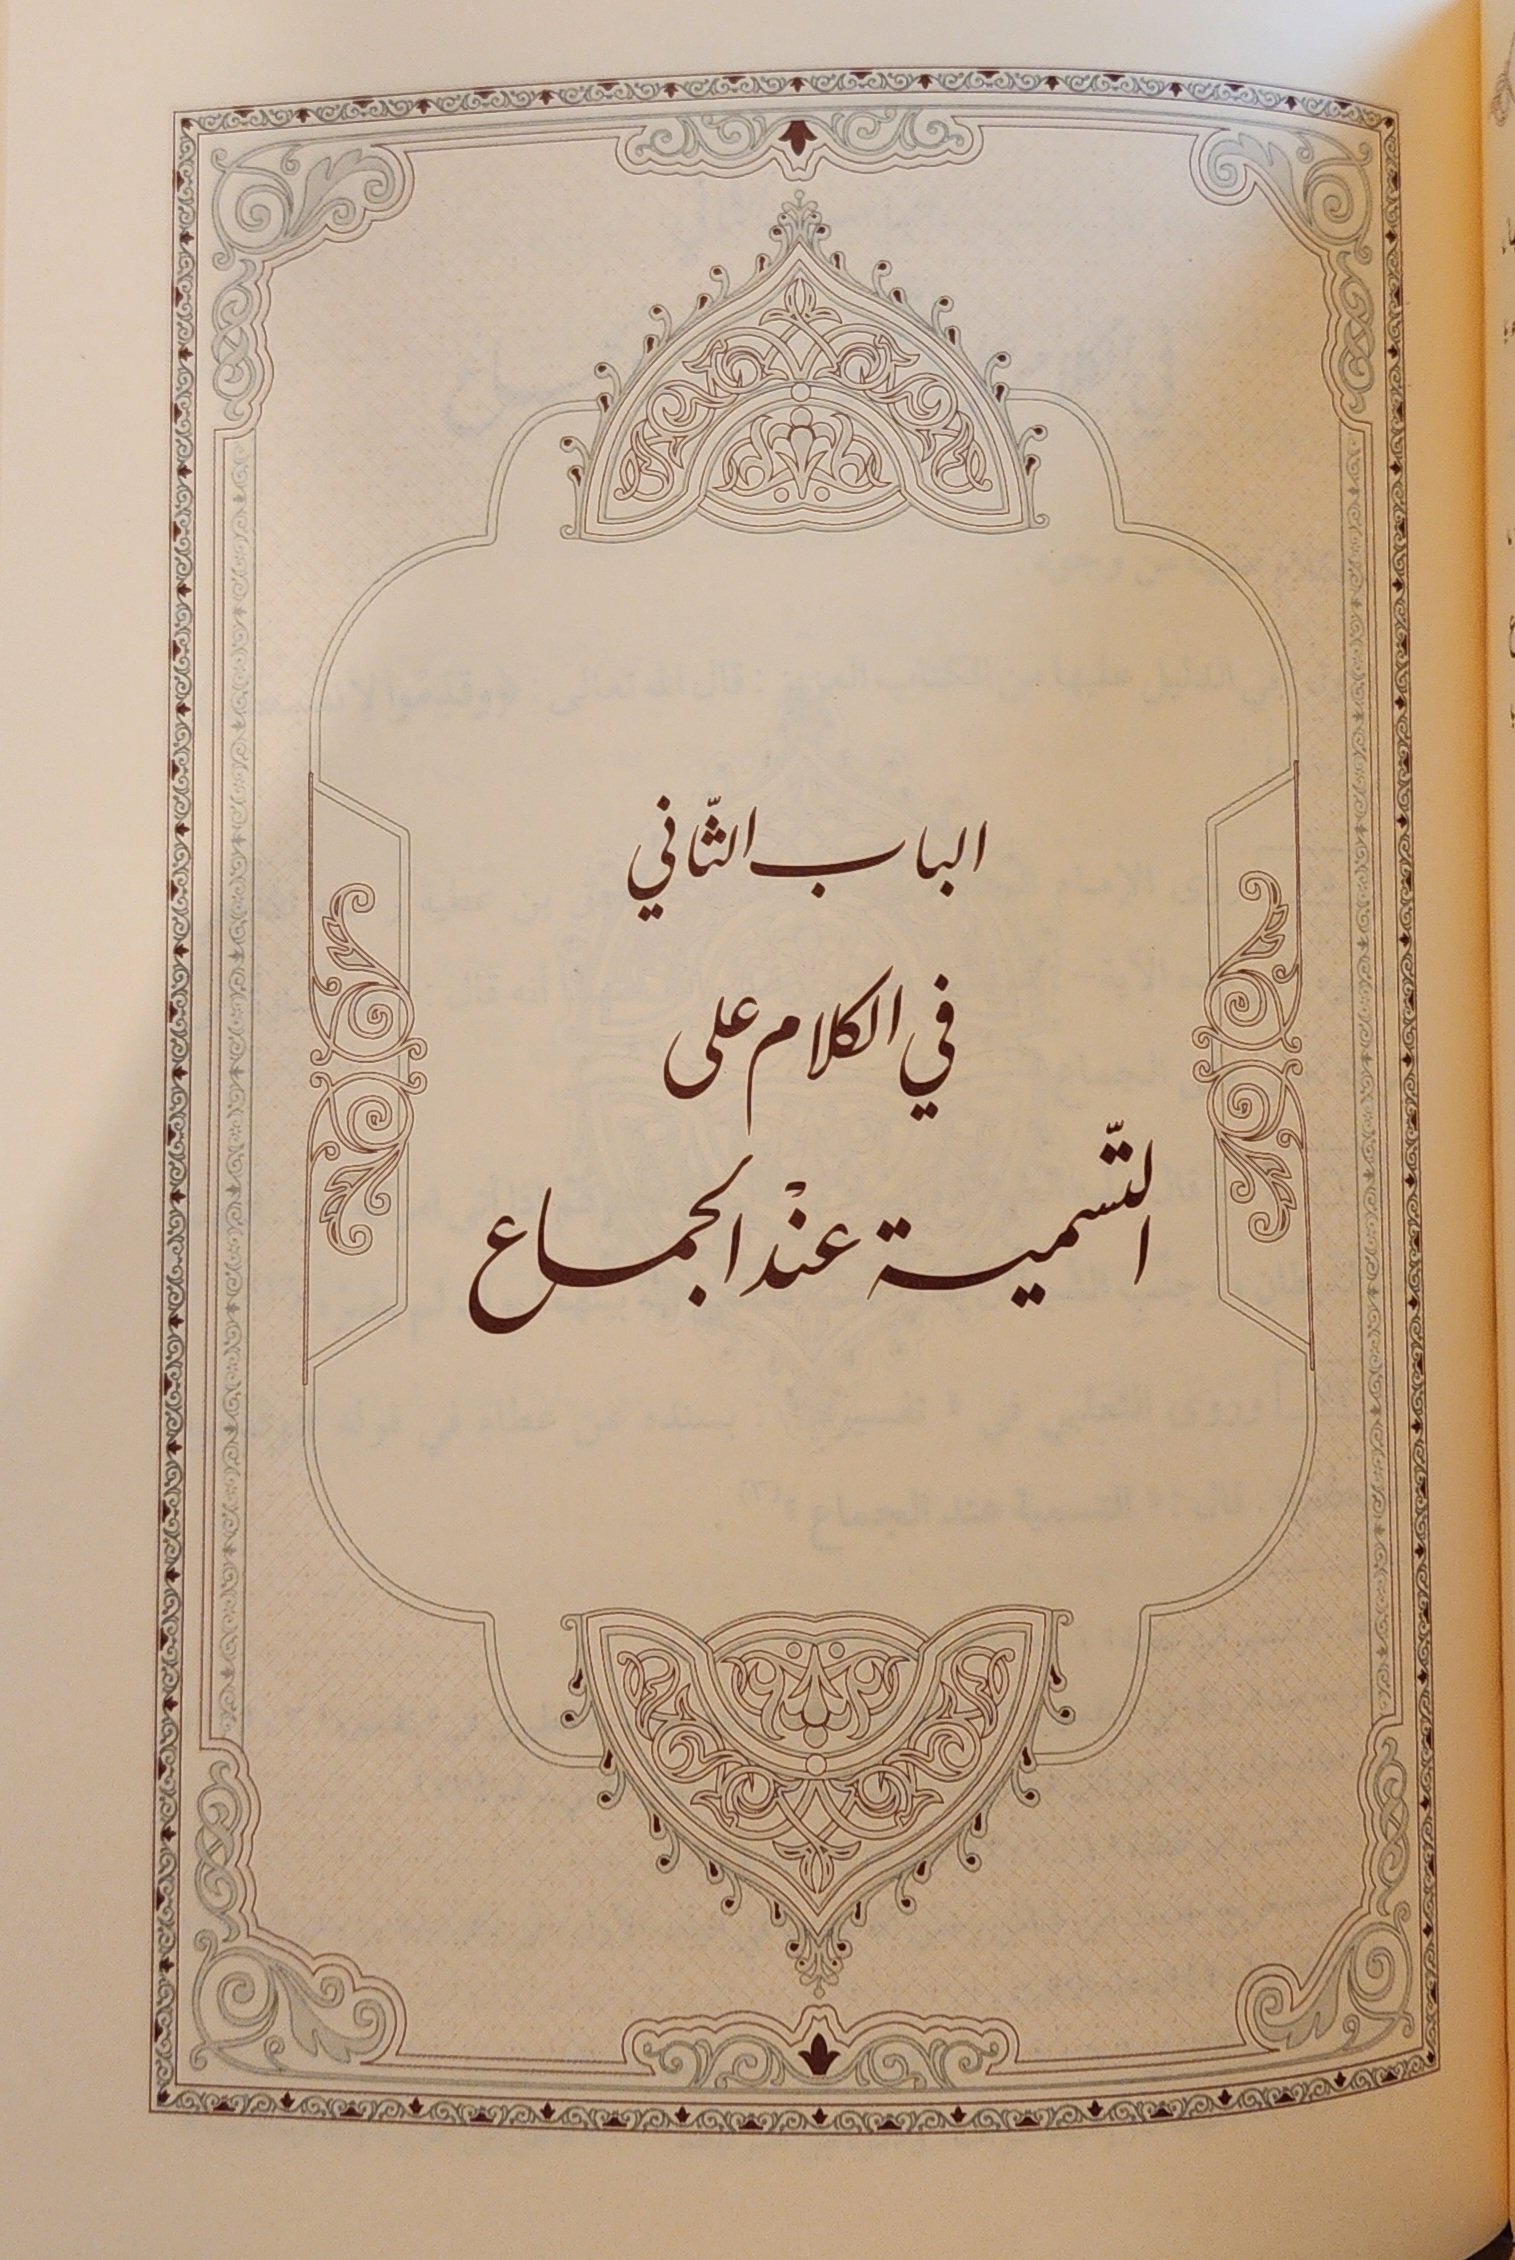 الباب الثّاني
في الكلام على
التّسمية عنْد الجماع